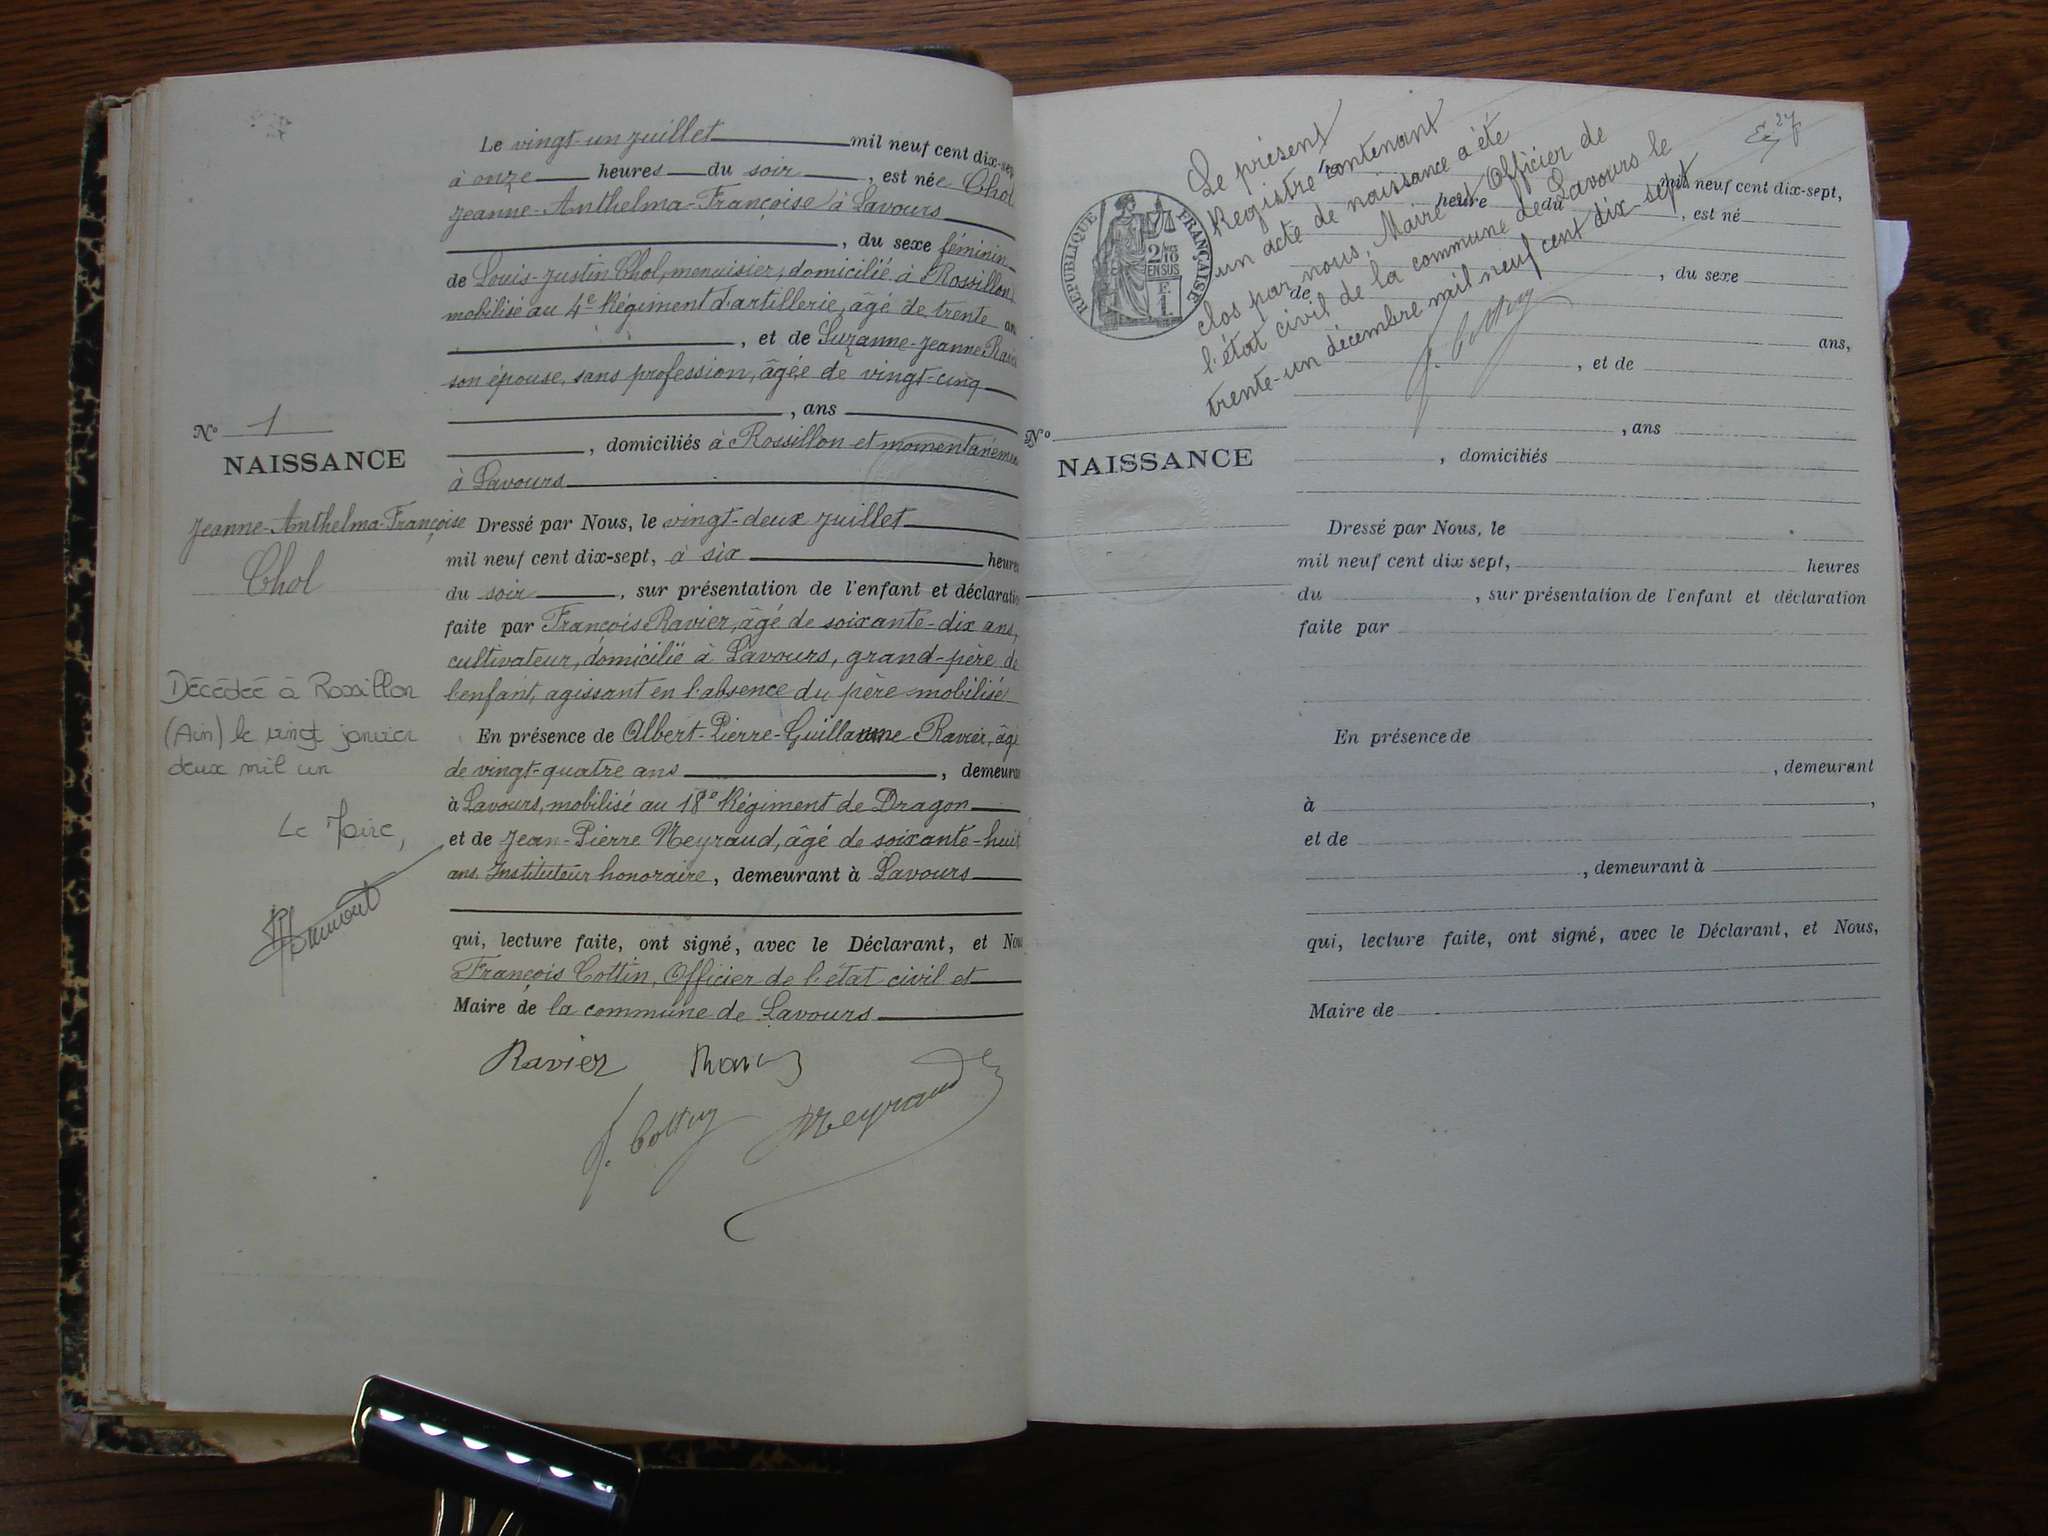 Le vingt-un juillet mil neuf cent dix-sep
à onze heures du soir, est née Chol
Jeanne-Anthelma-Françoise à Lavours
, du sexe féminin
de Louis-Justin Chol, menuisier, domicilié à Rossillon
mobilisé au 4e Régiment d'artillerie, âgé de trente an
, et de Suzanne-Jeanne Ravi
son épouse, sans profession, âgée de vingt-cinq
, ans
, domiciliés à Rossillon et momentanéme
à Lavours
N° 1
NAISSANCE
Jeanne-Anthelma-Françoise
Chol
Dressé par Nous, le vingt-deux juillet
mil neuf cent dix-sept, à six heures
du soir, sur présentation de l'enfant et déclaratio
faite par François Ravier, âgé de soixante-dix ans,
cultivateur, domicilié à Lavours, grand-père de
l'enfant, agissant en l'absence du père mobilisé
Décédée à Rossillon
(Ain) le vingt janvier
deux mil un
Le Maire,
En présence de Albert-Pierre-Guillaume Ravier, âgé
de vingt-quatre ans, demeuran
à Lavours, mobilisé au 18e Régiment de Dragon
et de Jean-Pierre Meyraud, âgé de soixante-huit
ans, Instituteur honoraire, demeurant à Lavours
qui, lecture faite, ont signé, avec le Déclarant, et Nou
François Cottin, Officier de l'état civil et
Maire de la commune de Lavours
Ravier
F. Cottin Meyraud
27
Le présent
Registre contenant
un acte de naissance a été
clos par nous, Maire et Officier de
l'état civil de la commune de Lavours le
trente-un décembre mil neuf cent dix-sept
F. Cottin
RÉPUBLIQUE FRANÇAISE
2/10
EN SUS
F.
1.
mil neuf cent dix-sept,
heure du , est né
, du sexe
de
ans,
, et de
, ans
N°
NAISSANCE
, domiciliés
Dressé par Nous, le
mil neuf cent dix sept, heures
du , sur présentation de l'enfant et déclaration
faite par
En présence de
, demeurant
à ,
et de
, demeurant à
qui, lecture faite, ont signé, avec le Déclarant, et Nous,
Maire de